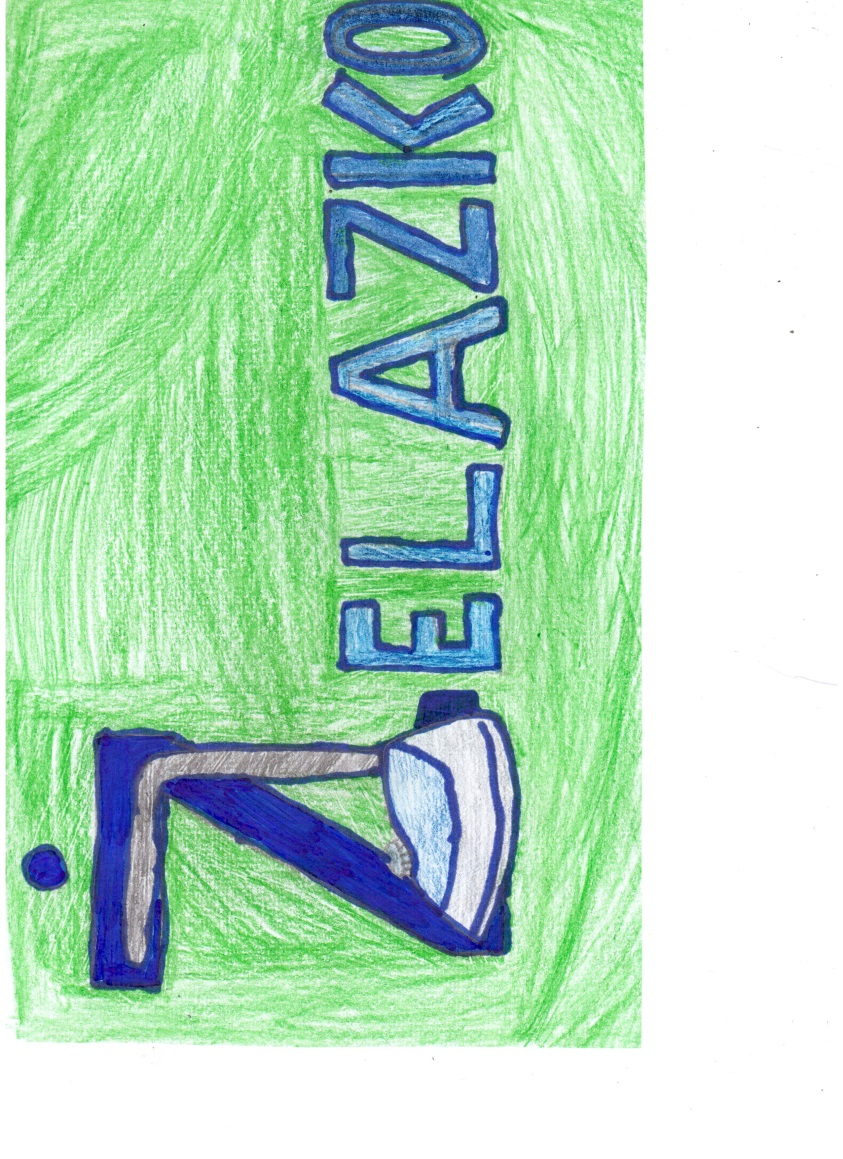 ŻELAZKO